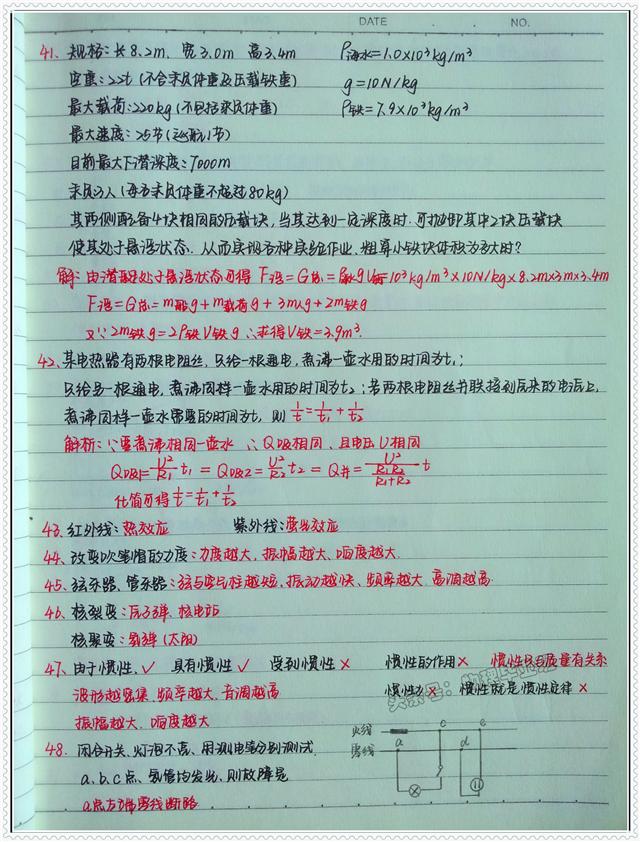 DATE NO.
41. 规格:长8.2m, 宽3.0m 高3.4m ρ海水=1.0×10³kg/m³
空重:22t(不含乘员体重及压载铁重) g=10N/kg
最大载荷:220kg(不包括乘员体重) ρ铁=7.9×10³kg/m³
最大速度:25节(巡航1节)
目前最大下潜深度:7000m
乘员3人(每名乘员体重不超过80kg)
其两侧配备4块相同的压载块,当其达到一定深度时.可抛卸其中2块压载块
使其处于悬浮状态.从而实现各种实验作业.
解:由潜艇处于悬浮状态可得 F浮=G总= 10³kg/m³×10N/kg×8.2m×3m×3.4m
F浮=G总=m艇g+m载荷g+3m人g+2m铁g
又∵2m铁g=2ρ铁V铁g ∴求得V铁=3.9m³.
42.某电热器有两根电阻丝,只给一根通电,煮沸一壶水用的时间为t₁;
只给另一根通电,煮沸同样一壶水用的时间为t₂;若两根电阻丝并联接到原来的电源上,
煮沸同样一壶水需要的时间为t,则 1/t=1/t₁+1/t₂
解析:∵要煮沸相同一壶水 ∴Q吸相同,且电压U相同
Q吸1=U²/R₁ t₁=Q吸2=U²/R₂ t₂=Q并=U²/(R₁R₂/(R₁+R₂)) t
化简可得1/t=1/t₁+1/t₂
43.红外线:热效应 紫外线:荧光效应
44.改变吹笔帽的力度:力度越大,振幅越大、响度越大.
45.弦乐器、管乐器:弦与空气柱越短,振动越快、频率越大.音调越高.
46.核裂变:原子弹 核电站
核聚变:氢弹(太阳)
47.由于惯性,✓ 具有惯性 ✓ 受到惯性 × 惯性的作用 × 惯性只与质量有关系
波形越密集,频率越大、音调越高 惯性力 × 惯性就是惯性定律 ×
振幅越大、响度越大
48.闭合开关、灯泡不亮、用测电笔分别测试 火线 c e
零线 a d
a、b、c点、氖管均发光、则故障是
a点左端零线断路